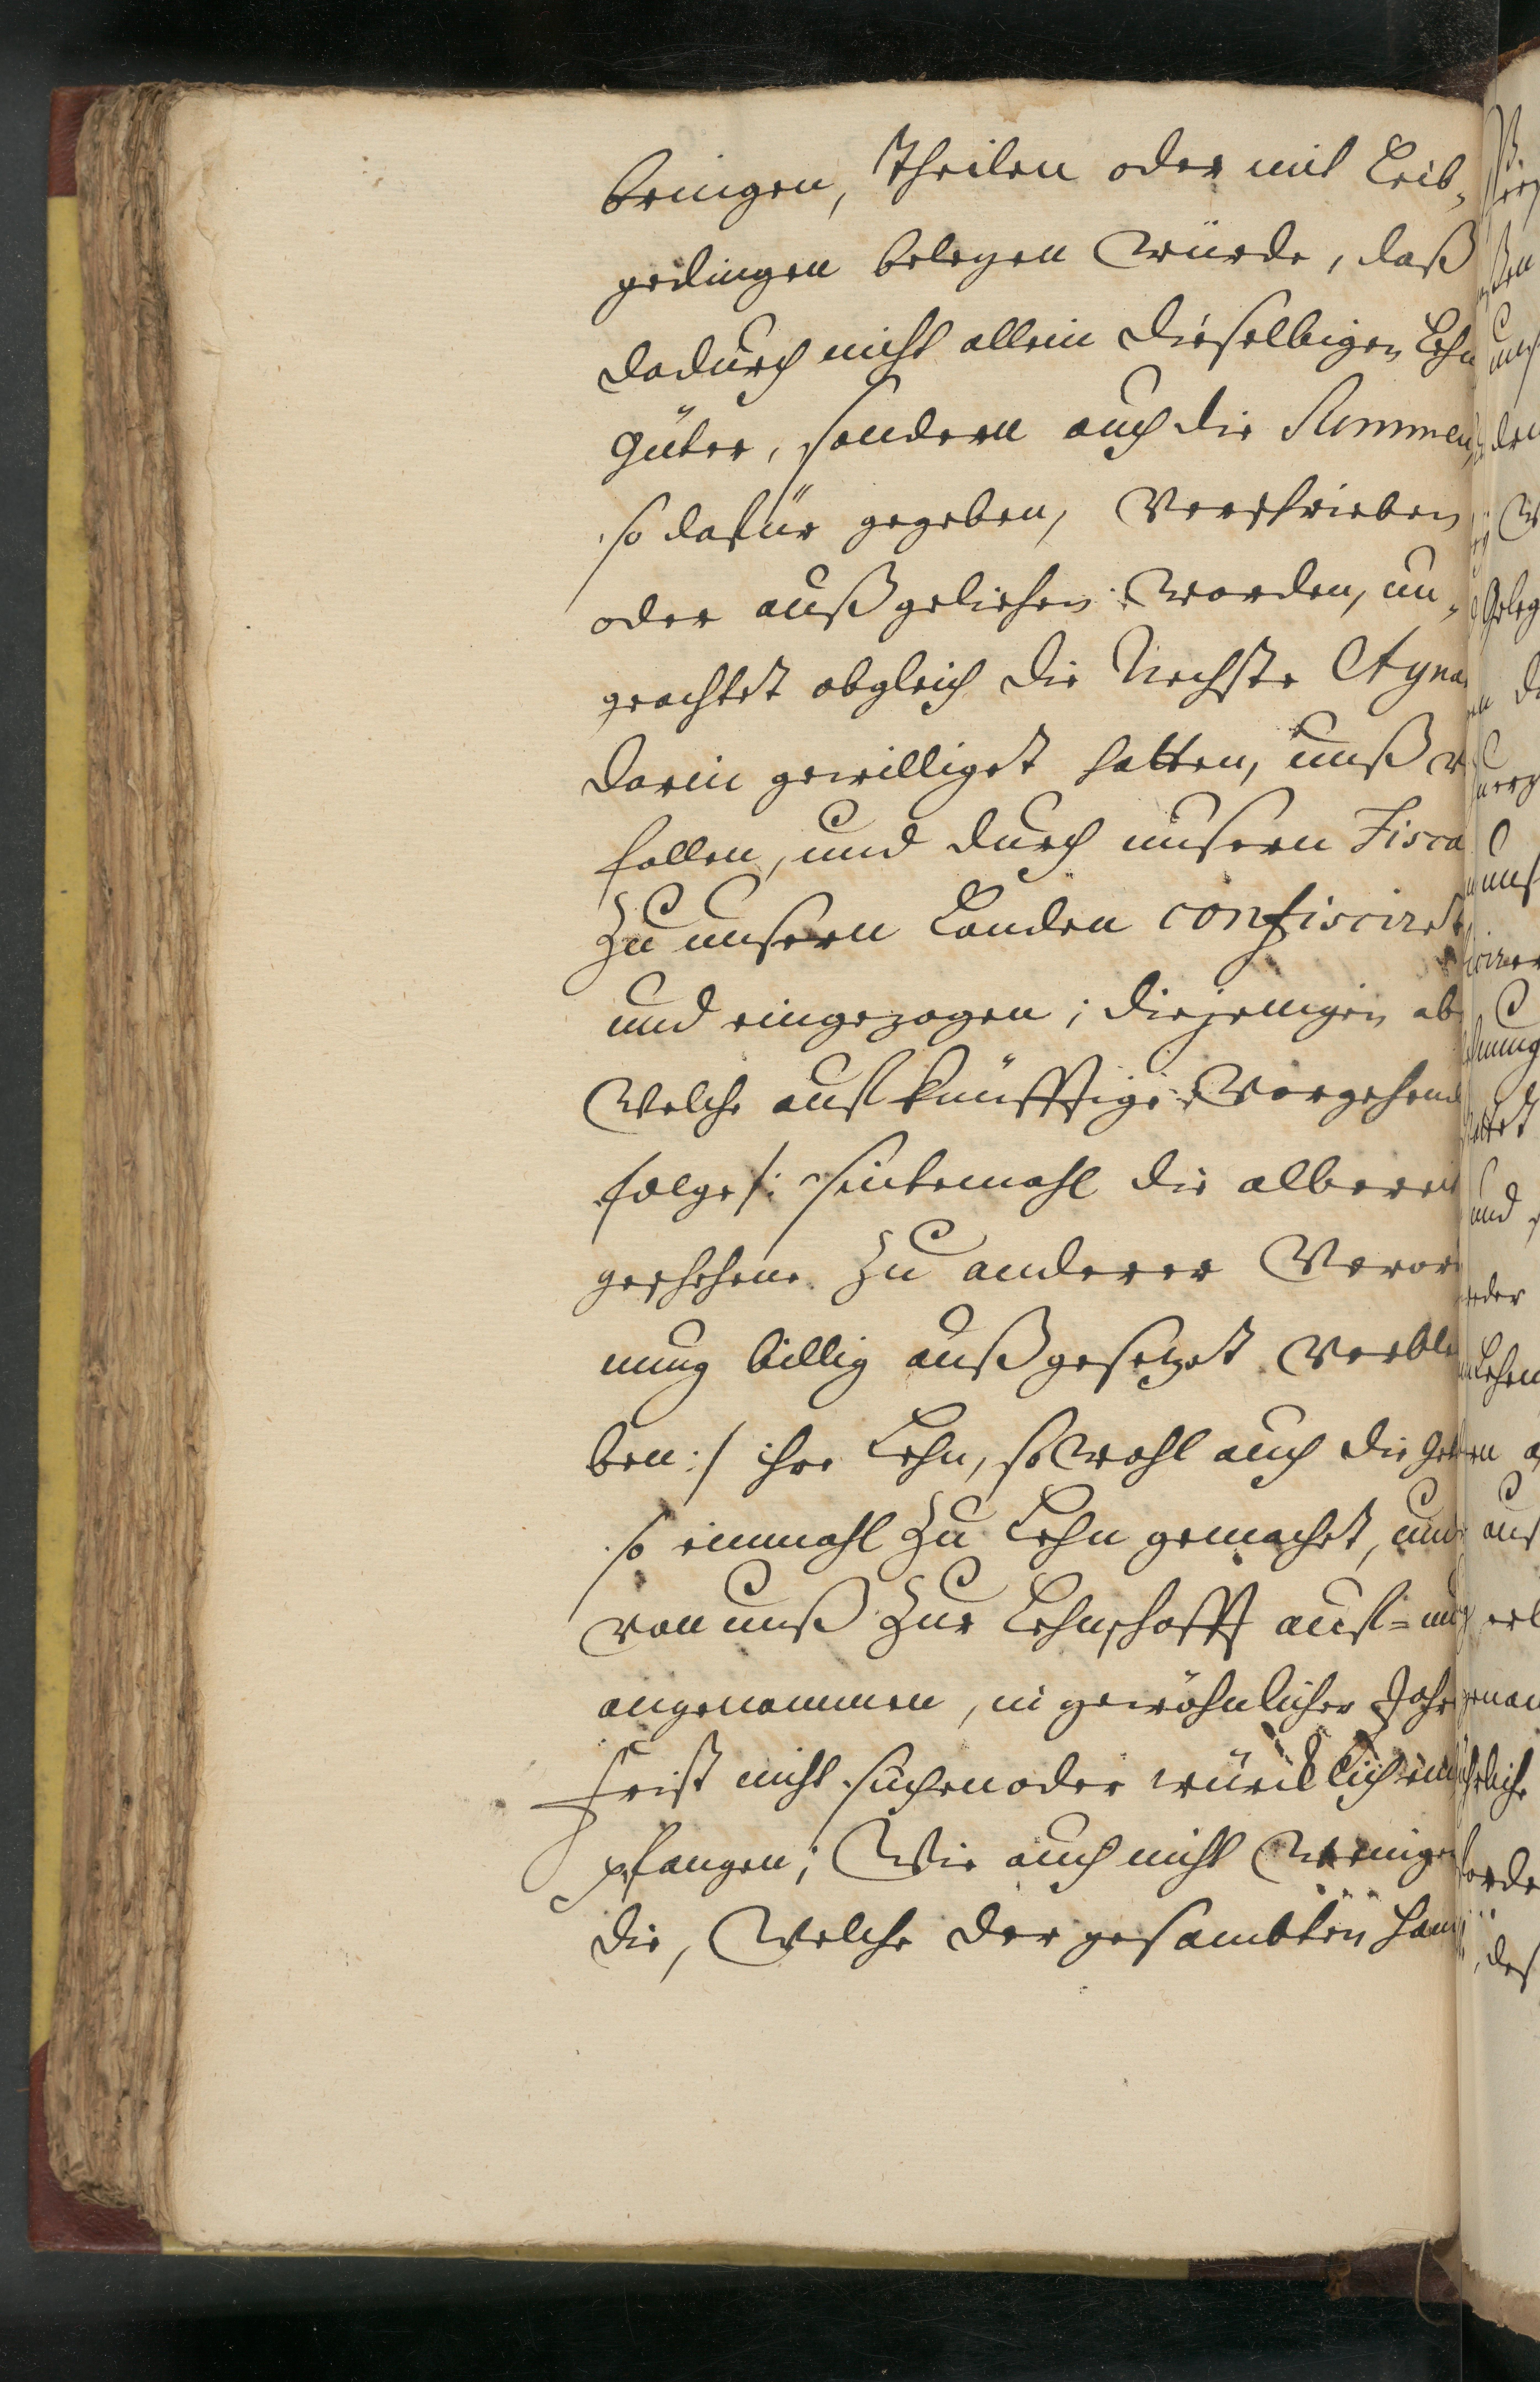 bringen, theilen oder mit Leib-
gedingen belegen würde, daß
dadurch nicht allein dieselbigen Lehn
güter, sondern auch die Summen,
so dafür gegeben, Verschrieben
oder außgeliehen worden, un-
geachtet obgleich die Nechste Agna
darin gewilliget hatten, unß
fallen, und durch unsern Fisca
Zu unsern Landen confisciret
und eingezogen; diejenigen ab
Welche auf künfftige Vorgehend
folge /: sintemahl die albereit
geschehene Zu anderer Veror
nung billig außgesetzet Verble
ben :/ ihre Lehn, so wohl auch die
so einmahl Zu Lehn gemachet, und
von unß Zur Lehnschafft auf- und
angenommen, in gewöhnlicher Jahr
frist nicht suchen oder würcklich em
pfangen; Wie auch nicht Weniger
die, Welche der gesambten Han